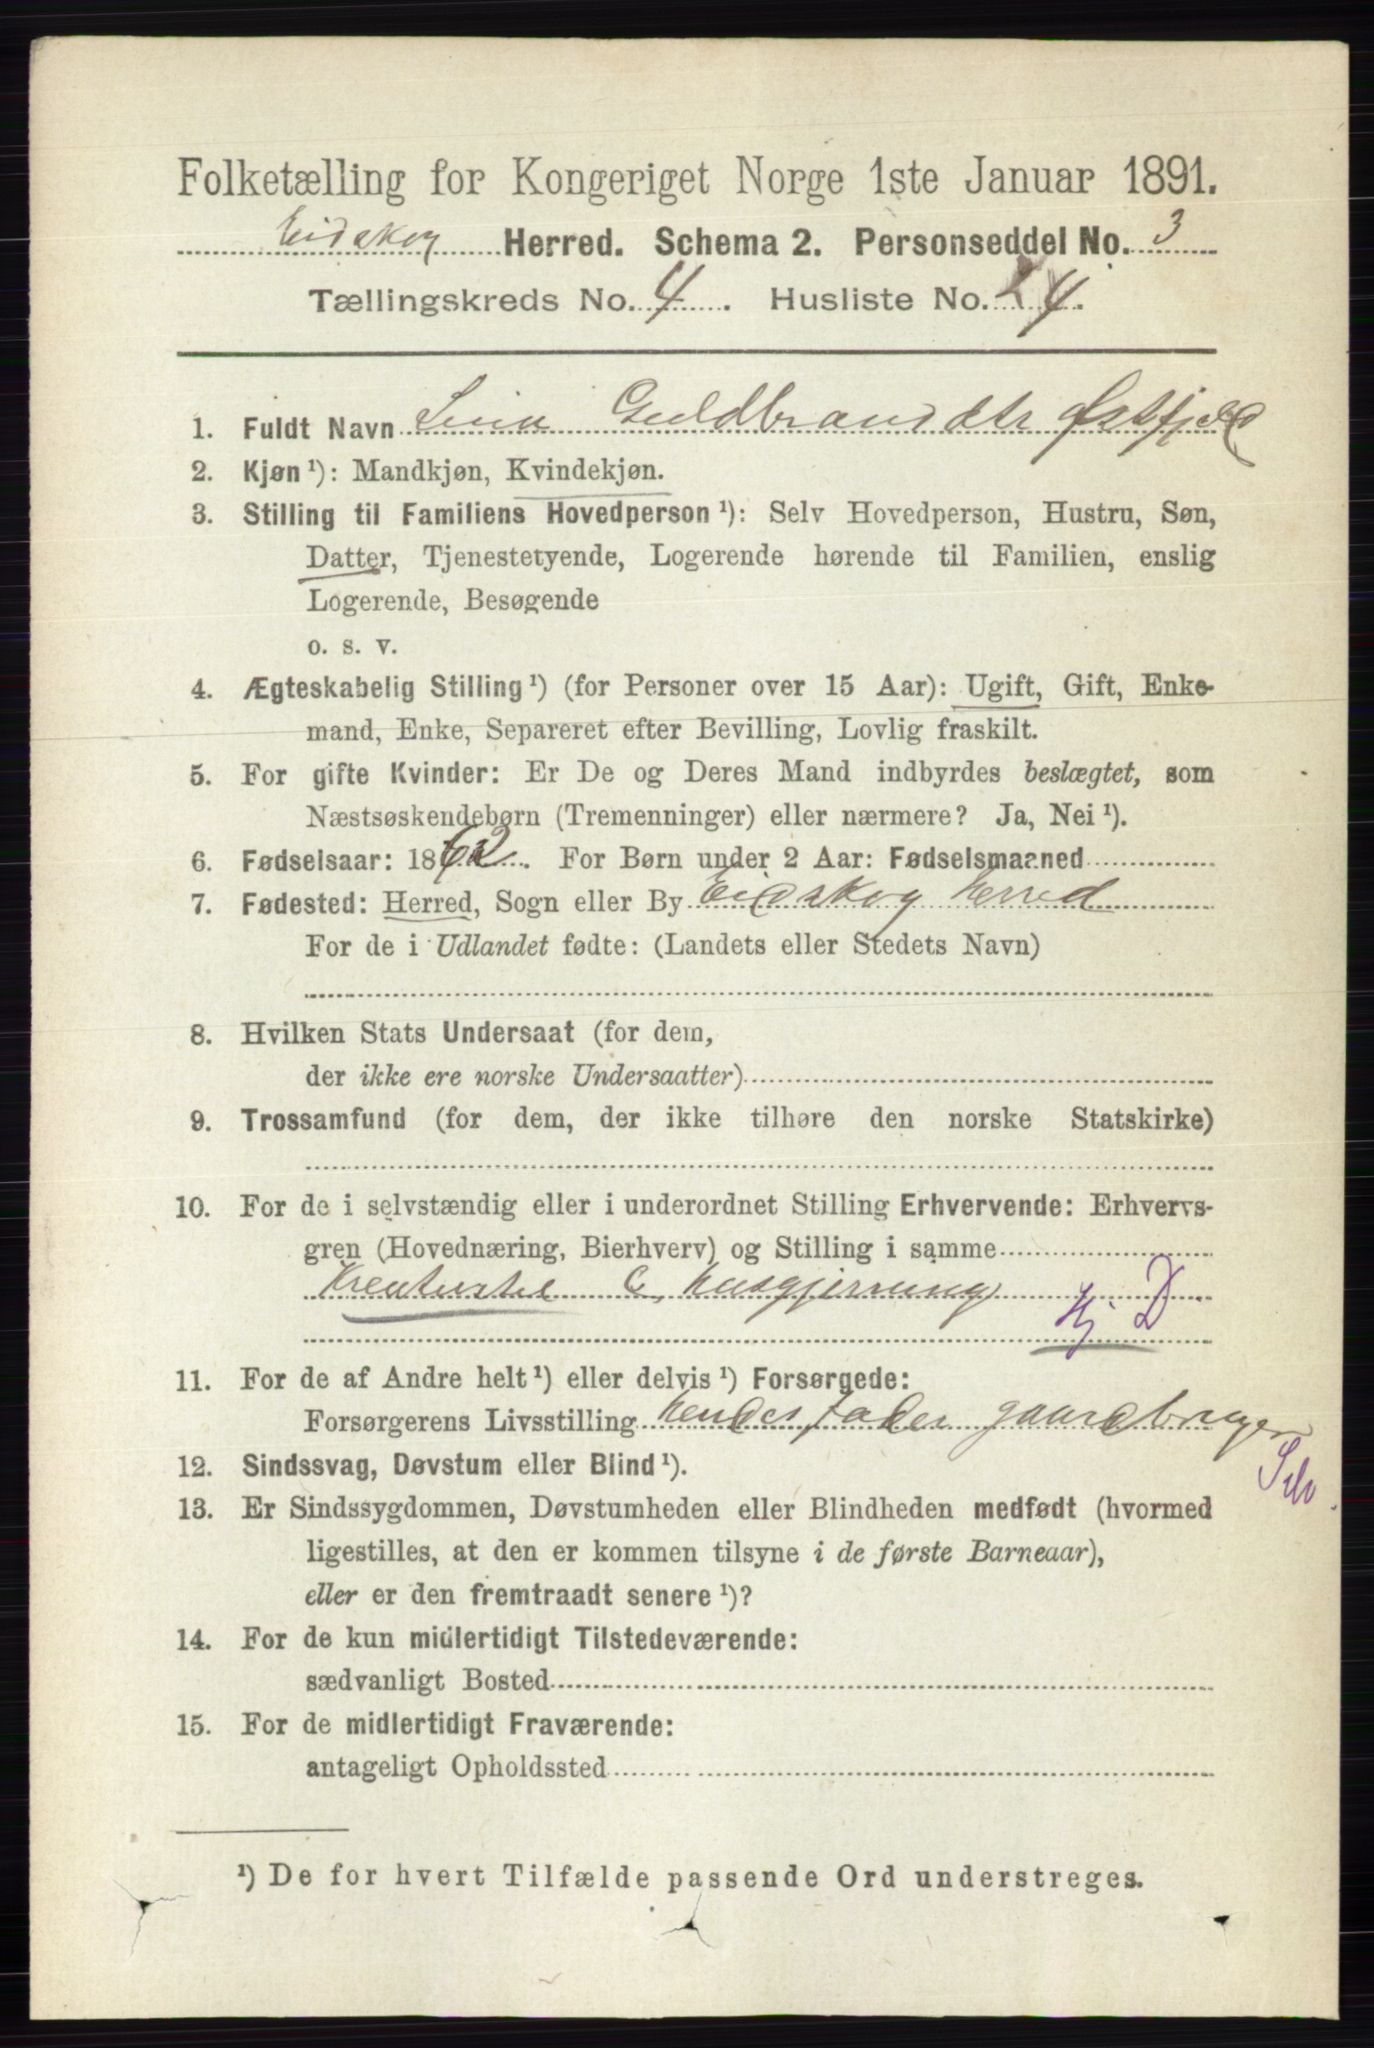 Folketælling for Kongeriget Norge 1ste Januar 1891.
Eidskog Herred. Schema 2. Personseddel No. 3
Tællingskreds No. 4. Husliste No. 4.
1. Fuldt Navn Lina Guldbrandsdtr Østfjeld
2. Kjøn ¹): Mandkjøn, Kvindekjøn.
3. Stilling til Familiens Hovedperson ¹): Selv Hovedperson, Hustru, Søn,
Datter, Tjenestetyende, Logerende hørende til Familien, enslig
Logerende, Besøgende
o. s. v.
4. Ægteskabelig Stilling ¹) (for Personer over 15 Aar): Ugift, Gift, Enke-
mand, Enke, Separeret efter Bevilling, Lovlig fraskilt.
5. For gifte Kvinder: Er De og Deres Mand indbyrdes beslægtet, som
Næstsøskendebørn (Tremenninger) eller nærmere? Ja, Nei ¹).
6. Fødselsaar: 1862. For Børn under 2 Aar: Fødselsmaaned
7. Fødested: Herred, Sogn eller By Eidskog Herred
For de i Udlandet fødte: (Landets eller Stedets Navn)
8. Hvilken Stats Undersaat (for dem,
der ikke ere norske Undersaatter)
9. Trossamfund (for dem, der ikke tilhøre den norske Statskirke)
10. For de i selvstændig eller i underordnet Stilling Erhvervende: Erhvervs-
gren (Hovednæring, Bierhverv) og Stilling i samme
Kreaturstel & Husgjerning Hj D
11. For de af Andre helt ¹) eller delvis ¹) Forsørgede:
Forsørgerens Livsstilling Hendes fader gaardbruger
Selv.
12. Sindssvag, Døvstum eller Blind ¹).
13. Er Sindssygdommen, Døvstumheden eller Blindheden medfødt (hvormed
ligestilles, at den er kommen tilsyne i de første Barneaar),
eller er den fremtraadt senere ¹)?
14. For de kun midlertidigt Tilstedeværende:
sædvanligt Bosted
15. For de midlertidigt Fraværende:
antageligt Opholdssted
¹) De for hvert Tilfælde passende Ord understreges.